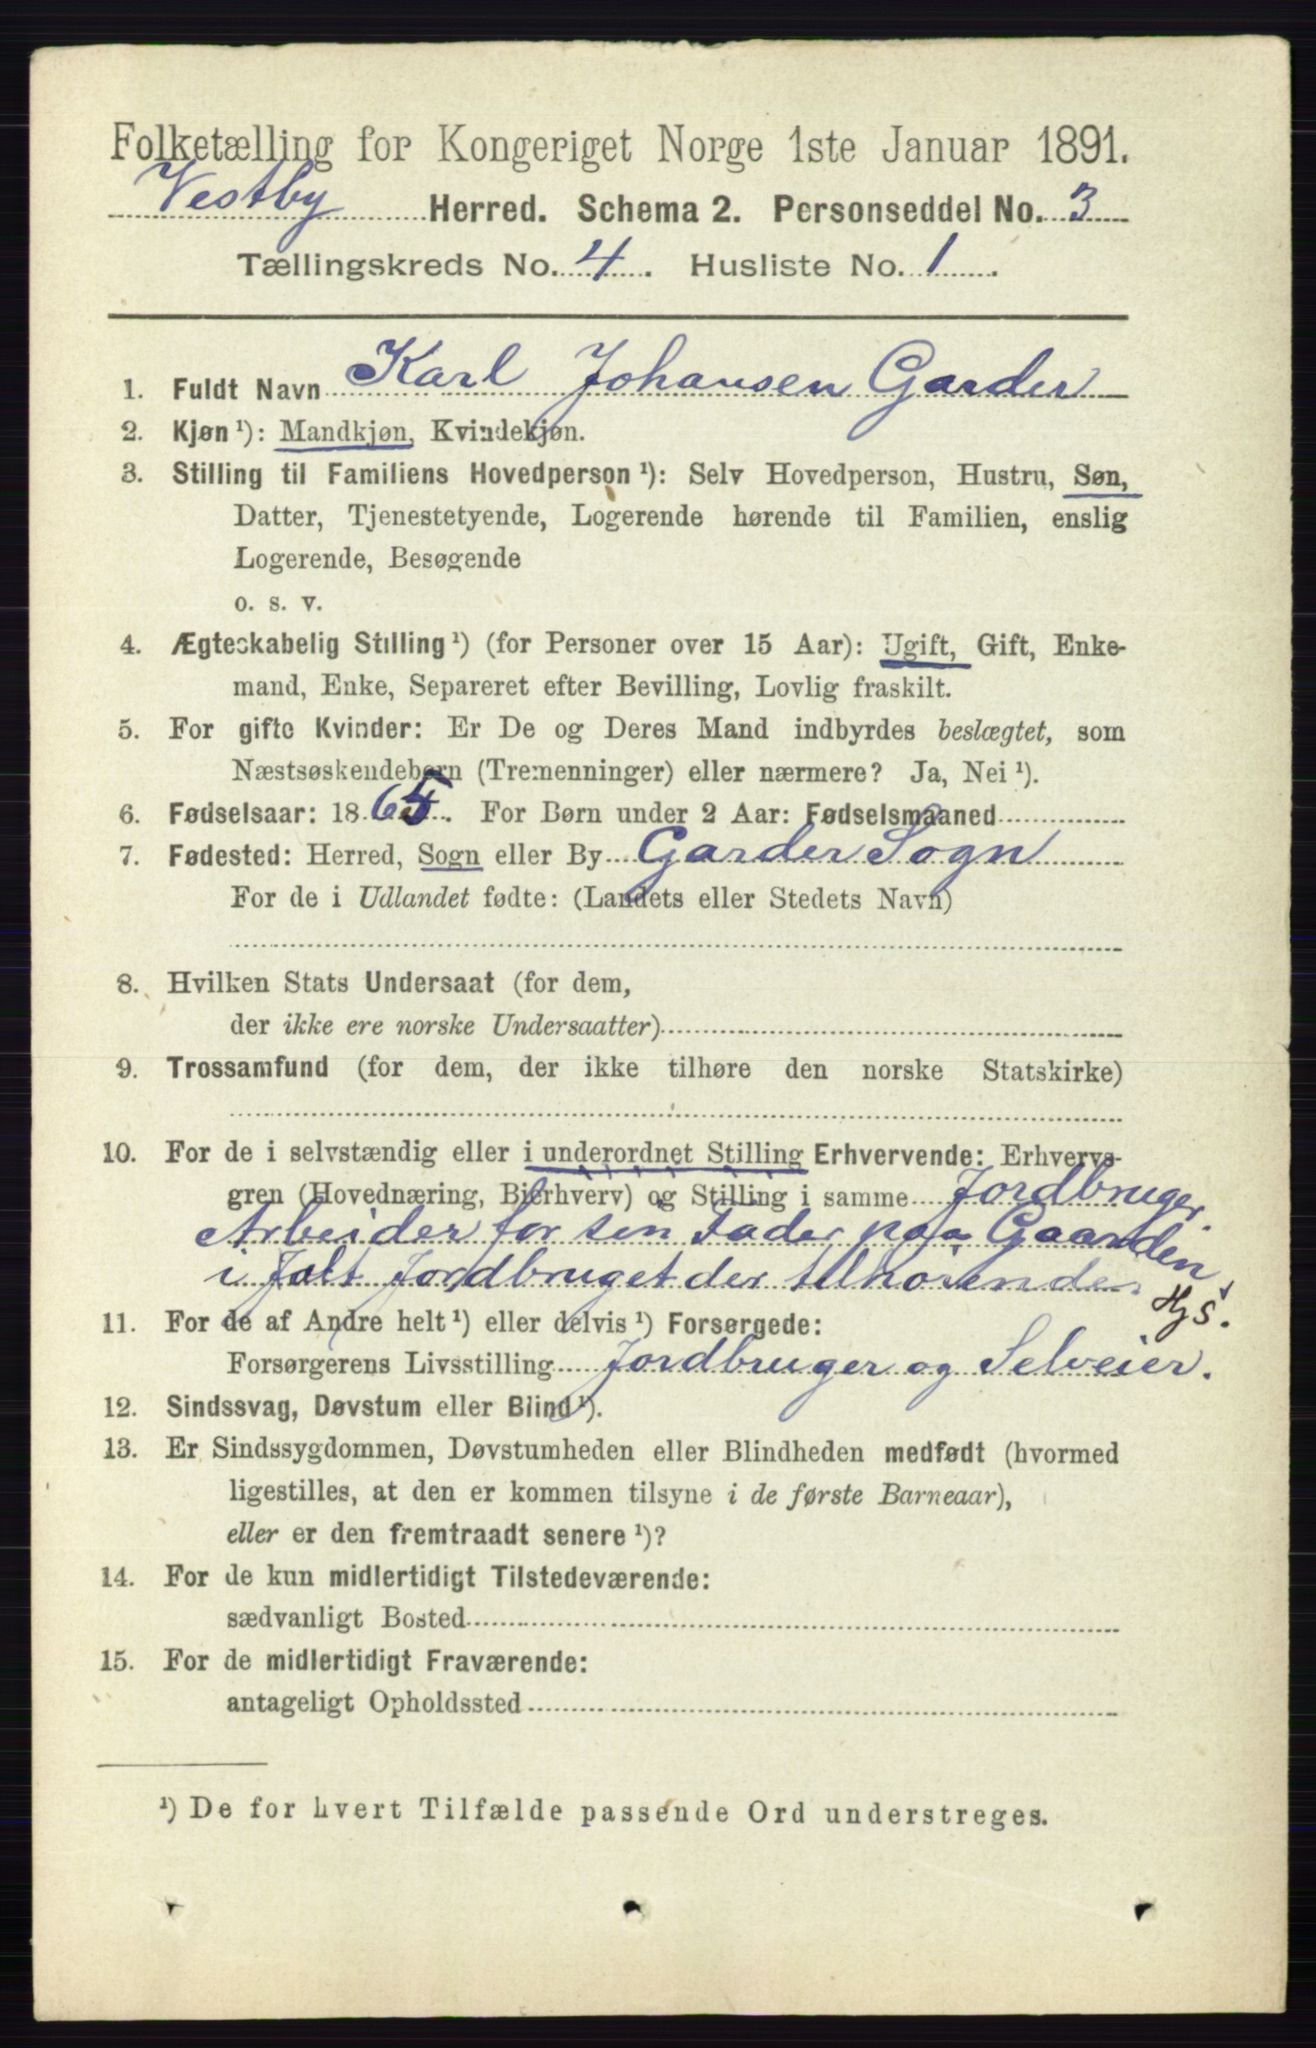 Folketælling for Kongeriget Norge 1ste Januar 1891.
Vestby Herred. Schema 2. Personseddel No. 3
Tællingskreds No. 4. Husliste No. 1.
1. Fuldt Navn Karl Johansen Garder
2. Kjøn¹): Mandkjøn, Kvindekjøn.
3. Stilling til Familiens Hovedperson¹): Selv Hovedperson, Hustru, Søn,
Datter, Tjenestetyende, Logerende hørende til Familien, enslig
Logerende, Besøgende
o. s. v.
4. Ægteskabelig Stilling¹) (for Personer over 15 Aar): Ugift, Gift, Enke-
mand, Enke, Separeret efter Bevilling, Lovlig fraskilt.
5. For gifte Kvinder: Er De og Deres Mand indbyrdes beslægtet, som
Næstsøskendebørn (Tremenninger) eller nærmere? Ja, Nei¹).
6. Fødselsaar: 1865. For Børn under 2 Aar: Fødselsmaaned
7. Fødested: Herred, Sogn eller By Garder Sogn
For de i Udlandet fødte: (Landets eller Stedets Navn)
8. Hvilken Stats Undersaat (for dem,
der ikke ere norske Undersaatter)
9. Trossamfund (for dem, der ikke tilhøre den norske Statskirke)
10. For de i selvstændig eller i underordnet Stilling Erhvervende: Erhvervs-
gren (Hovednæring, Bierhverv) og Stilling i samme Jordbruger,
Arbeider for sin Fader paa Gaarden
i Jordbruget der tilhørende.
HjS.
11. For de af Andre helt¹) eller delvis¹) Forsørgede:
Forsørgerens Livsstilling Jordbruger og Selveier.
12. Sindssvag, Døvstum eller Blind¹).
13. Er Sindssygdommen, Døvstumheden eller Blindheden medfødt (hvormed
ligestilles, at den er kommen tilsyne i de første Barneaar),
eller er den fremtraadt senere¹)?
14. For de kun midlertidigt Tilstedeværende:
sædvanligt Bosted
15. For de midlertidigt Fraværende:
antageligt Opholdssted
¹) De for hvert Tilfælde passende Ord understreges.